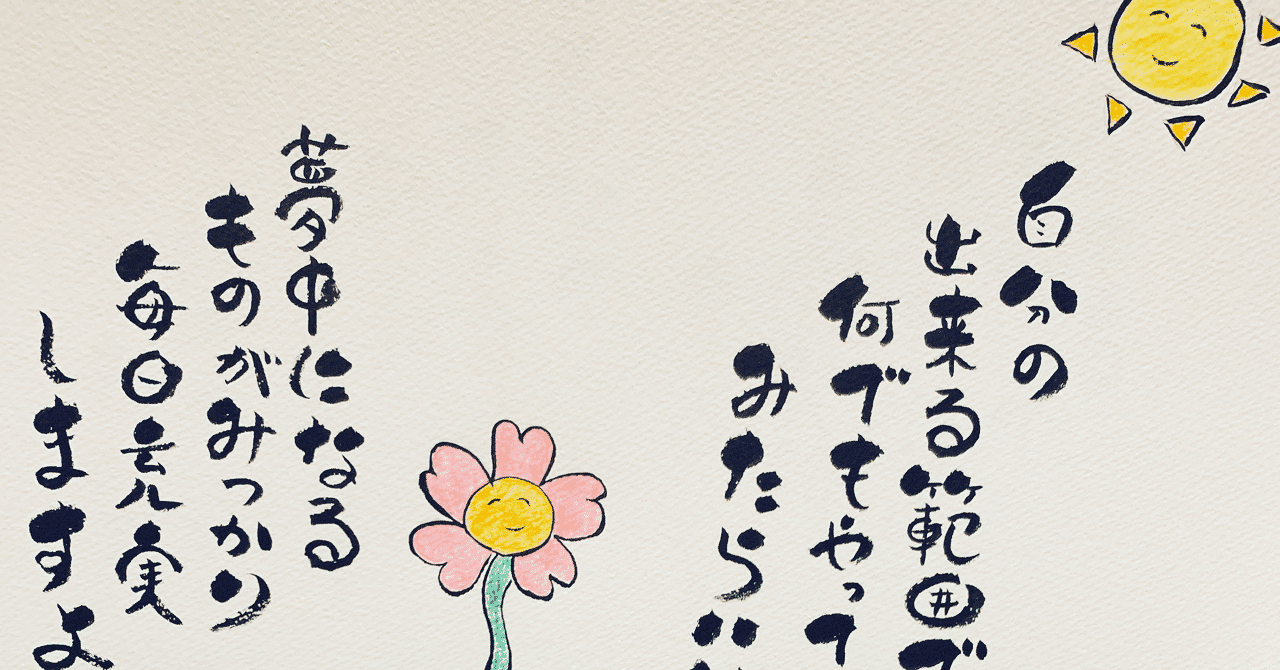 自分の
出来る範囲で
何でもやって
みたら
夢中になる
ものがみつかり
毎日充実
しますよ